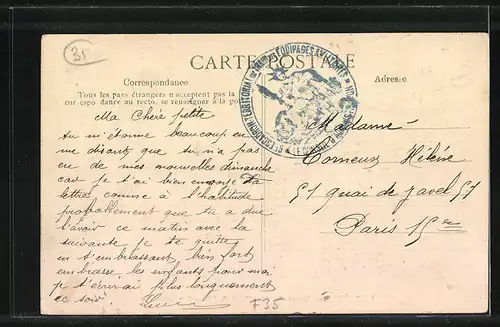 35
CARTE POSTALE
Correspondance
Adresse
Tous les pays étrangers n'acceptent pas la
correspondance au recto, se renseigner à la po
Ma Chere petite
Tu m'étonne beaucoup en
me disants que tu n'a pas
eu de mes nouvelles dimanche
car je t'ai bien envoyé ta
lettre comme à l'habitude
probablement que tu a due
l'avoir ce matin avec la
suivante je te quitte
en t'embrassant bien fort
embrasse les enfants pour moi
je t'écrirai plus longuement
ce soir
Madame
Comeux Hélène
51 quai de Javel 51
Paris 15e
F35